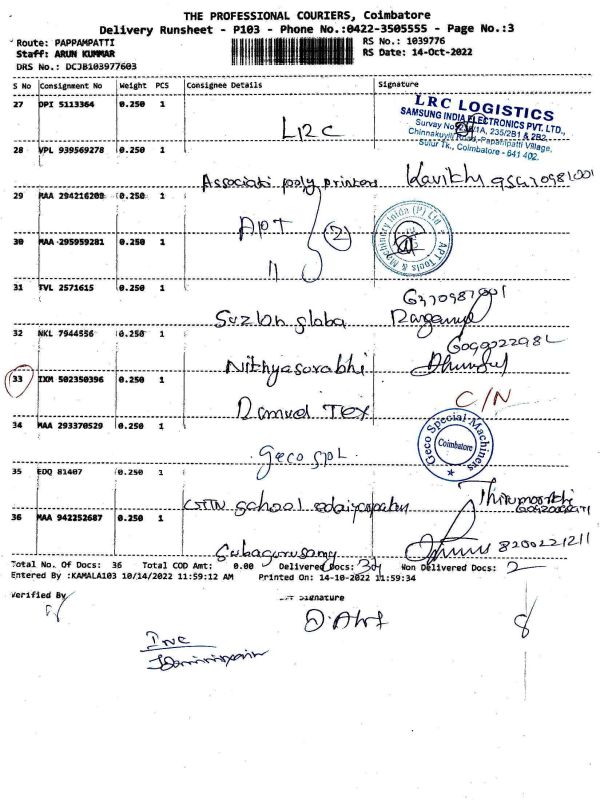 THE PROFESSIONAL COURIERS, Coimbatore
Delivery Runsheet - P103 - Phone No.:0422-3505555 - Page No.:3
Route: PAPPAMPATTI
RS No.: 1039776
Staff: ARUN KUMMAR
RS Date: 14-Oct-2022
DRS No.: DCJB103977603
S No Consignment No Weight PCS Consignee Details Signature
27 DPI 5113364 0.250 1
LRC
LRC LOGISTICS
SAMSUNG INDIA ELECTRONICS PVT. LTD.,
235/2B1 & 2B2
Chinnakuyili Road, Papampatti Village,
Sulur Tk., Coimbatore - 641 402.
28 VPL 939569278 0.250 1
Associate poly printers
29 MAA 294216208 0.250 1
APT (2)
APT Tools & Machinery India (P) Ltd
30 MAA 295959281 0.250 1
11
31 TVL 2571615 0.250 1
Suzlon globa
32 NKL 7944556 0.250 1
Nithyasurabhi
33 IXM 502350396 0.250 1
Tex C/N
34 MAA 293370529 0.250 1
Geco spl
Geco Special Machiners
Coimbatore
35 EDQ 81407 0.250 1
school
Thirumoorthi
36 MAA 942252687 0.250 1
8200221211
Total No. Of Docs: 36 Total COD Amt: 0.00 Delivered Docs: 34 Non Delivered Docs: 2
Entered By :KAMALA103 10/14/2022 11:59:12 AM Printed On: 14-10-2022 11:59:34
Verified By
Signature